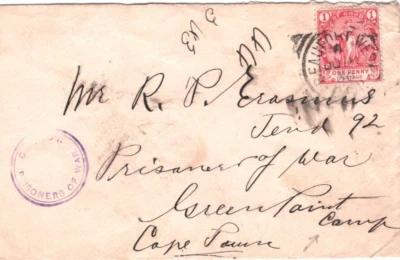 1 1
ONE PENNY
Mr R. P. Erasmus
Tend 92
Prisoner of War
Green Point
Camp
Cape Town
PRISONERS OF WAR